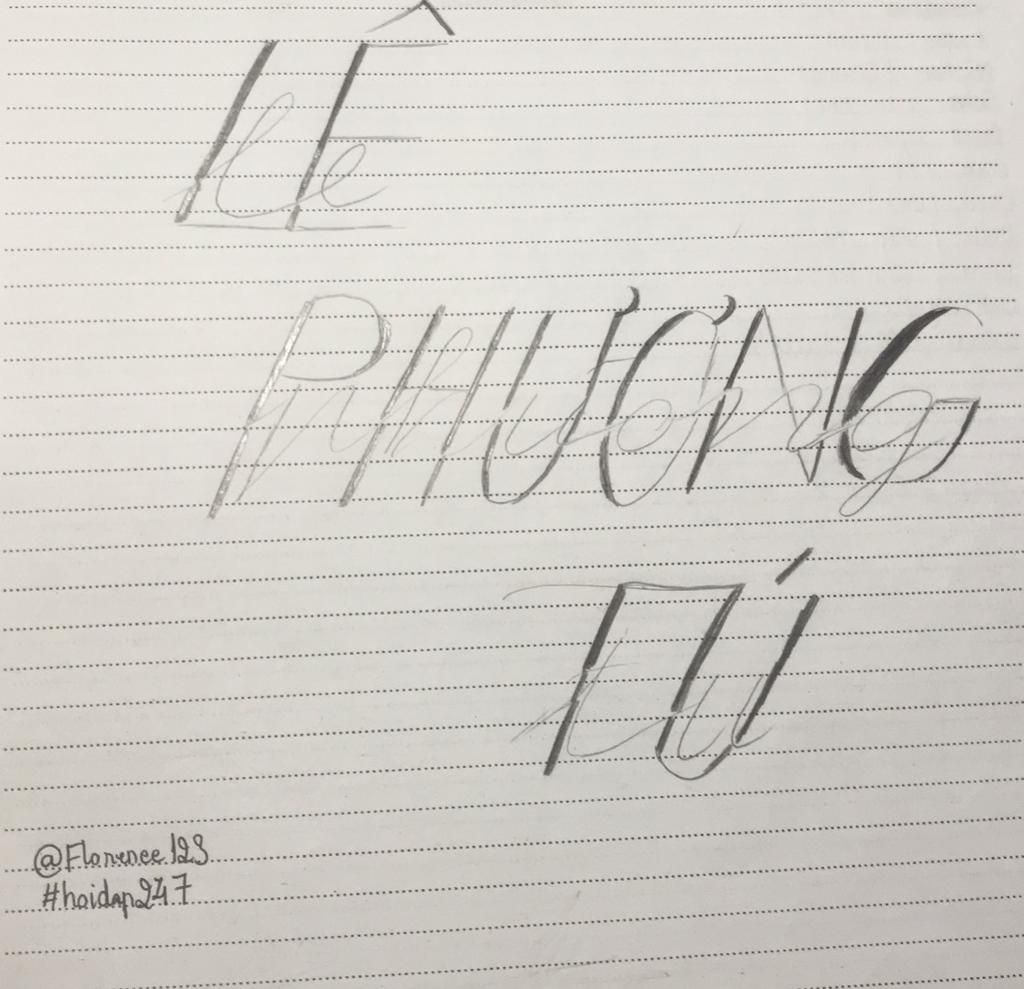 LÊ
le
PHƯƠNG
phương
TÚ
tu
@Florencee123
#hoidap247